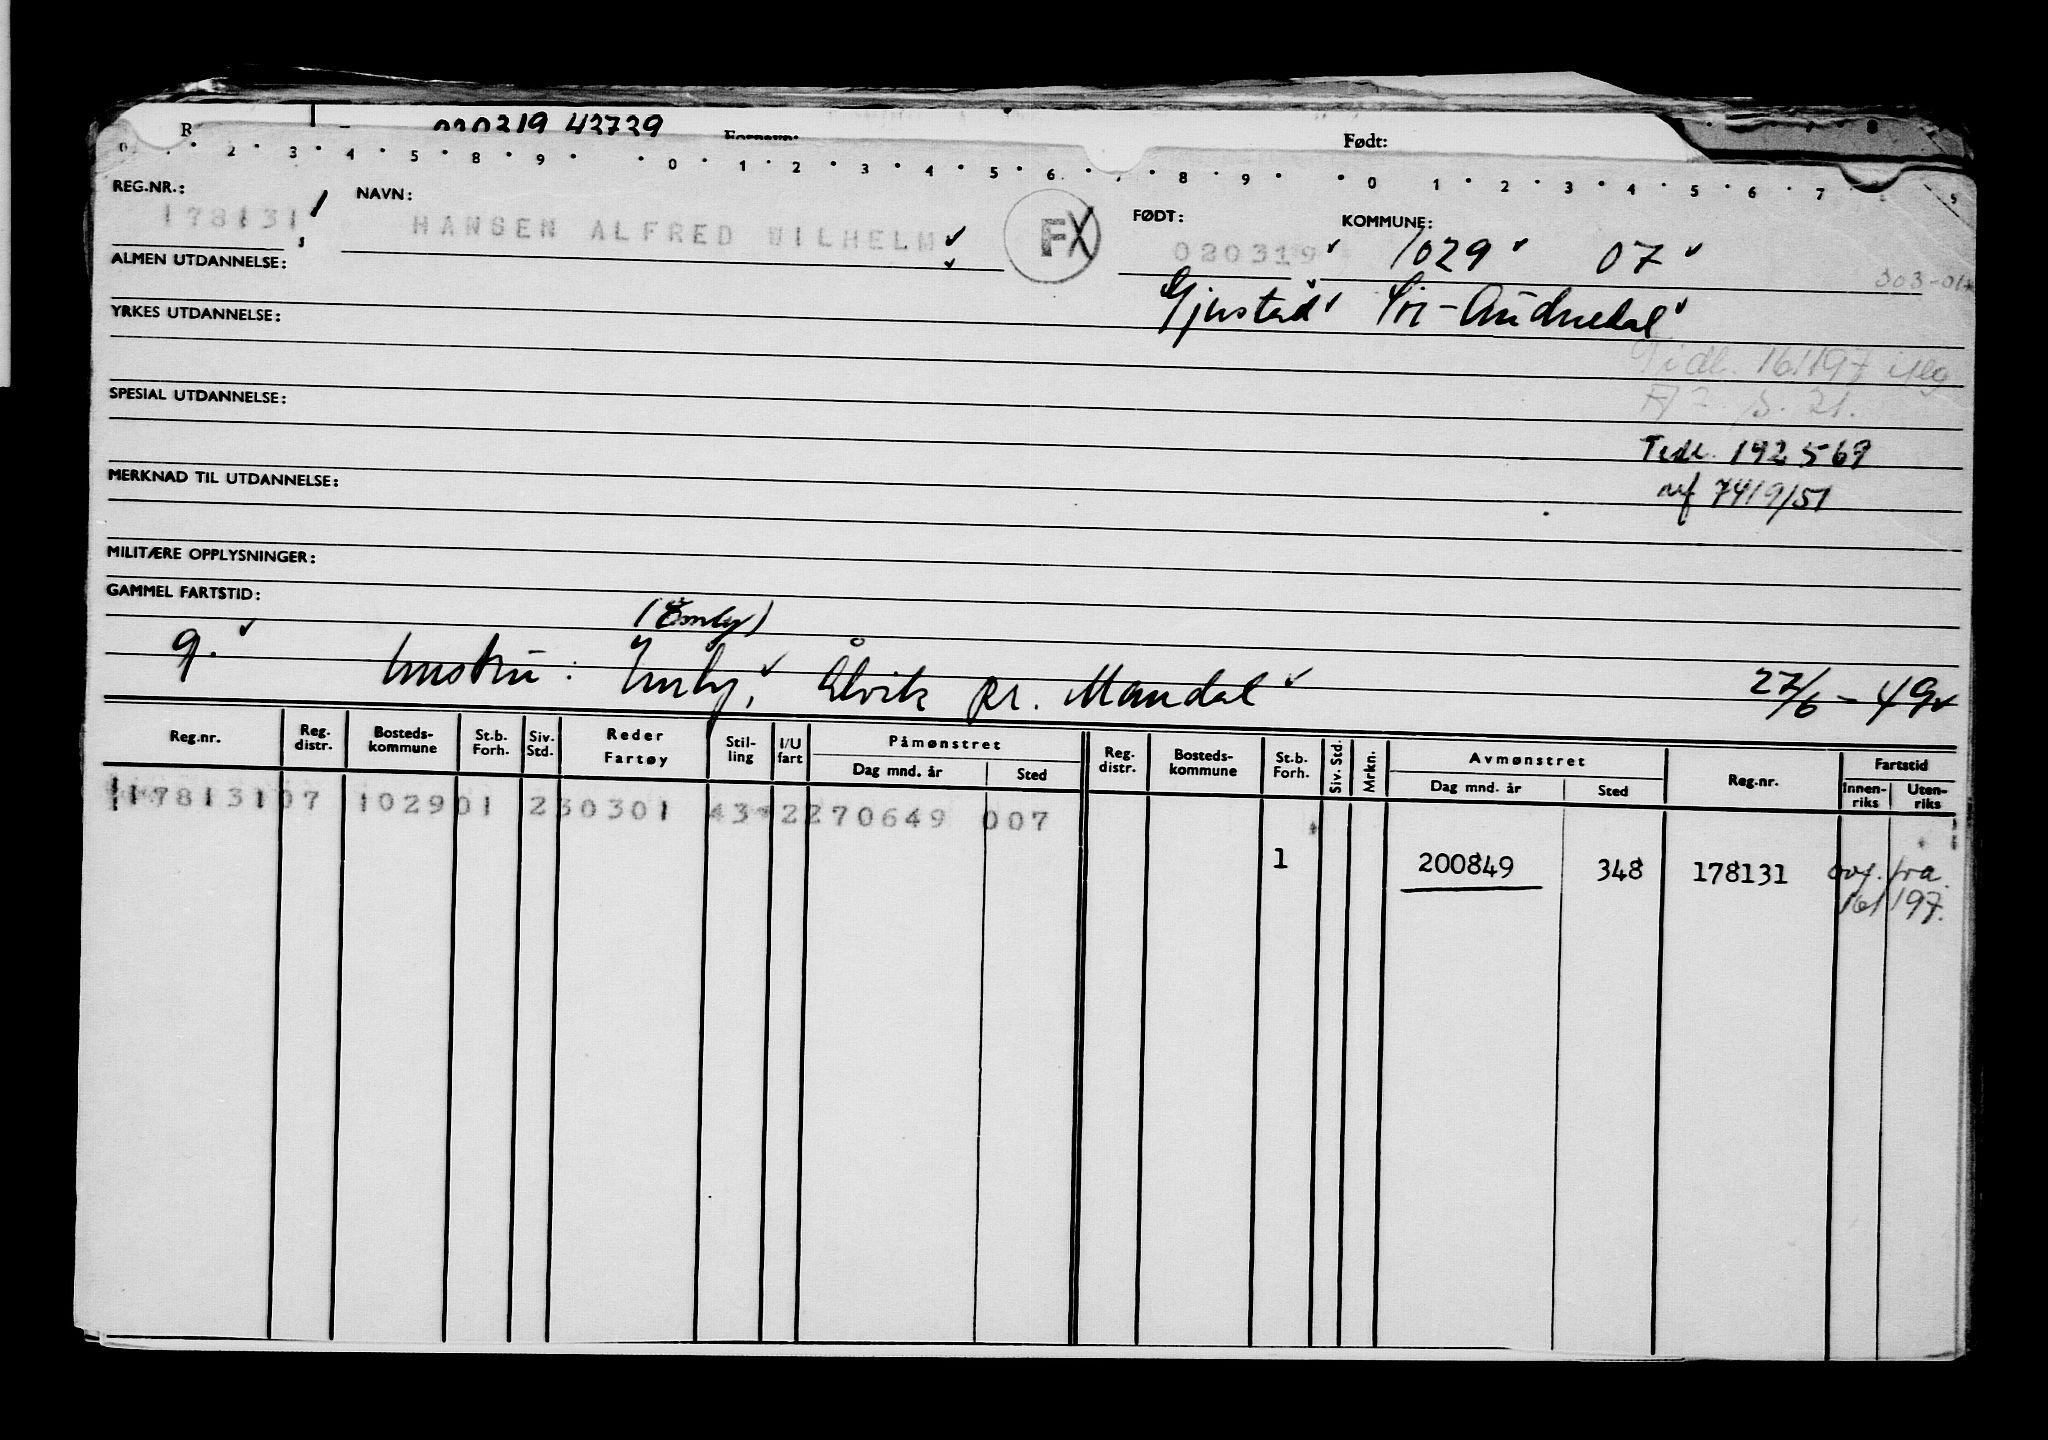 0219 42729
Født:
0 2 3 4 5 8 9 0 1 2 3 4 5 6 8 9 0 1 2 3 4 5 6 7 9
REG.NR.: NAVN: FØDT: KOMMUNE:
178131 HANSEN ALFRED WILHELM FX 020319 1029 07
303-01
ALMEN UTDANNELSE:
Sør-Audnedal
YRKES UTDANNELSE:
Tidl. 161197
S. 21.
SPESIAL UTDANNELSE:
Tidl. 192569
MERKNAD TIL UTDANNELSE:
ref 7419/51
MILITÆRE OPPLYSNINGER:
GAMMEL FARTSTID:
(Emly)
g. hustru: Emly, Ålvik pr. Mandal 27/6-49
Reg.nr. Reg. distr. Bosteds-kommune St.b. Forh. Siv. Std. Reder Fartøy Stil-ling I/U fart Påmønstret Dag mnd. år Sted Reg. distr. Bosteds-kommune St.b. Forh. Siv. Std. Mrkn. Avmønstret Dag mnd. år Sted Reg.nr. Fartstid Innen-riks Uten-riks
178131 07 1029 01 2 30301 43 2 270649 007
1 200849 348 178131 ovf. fra
161197.